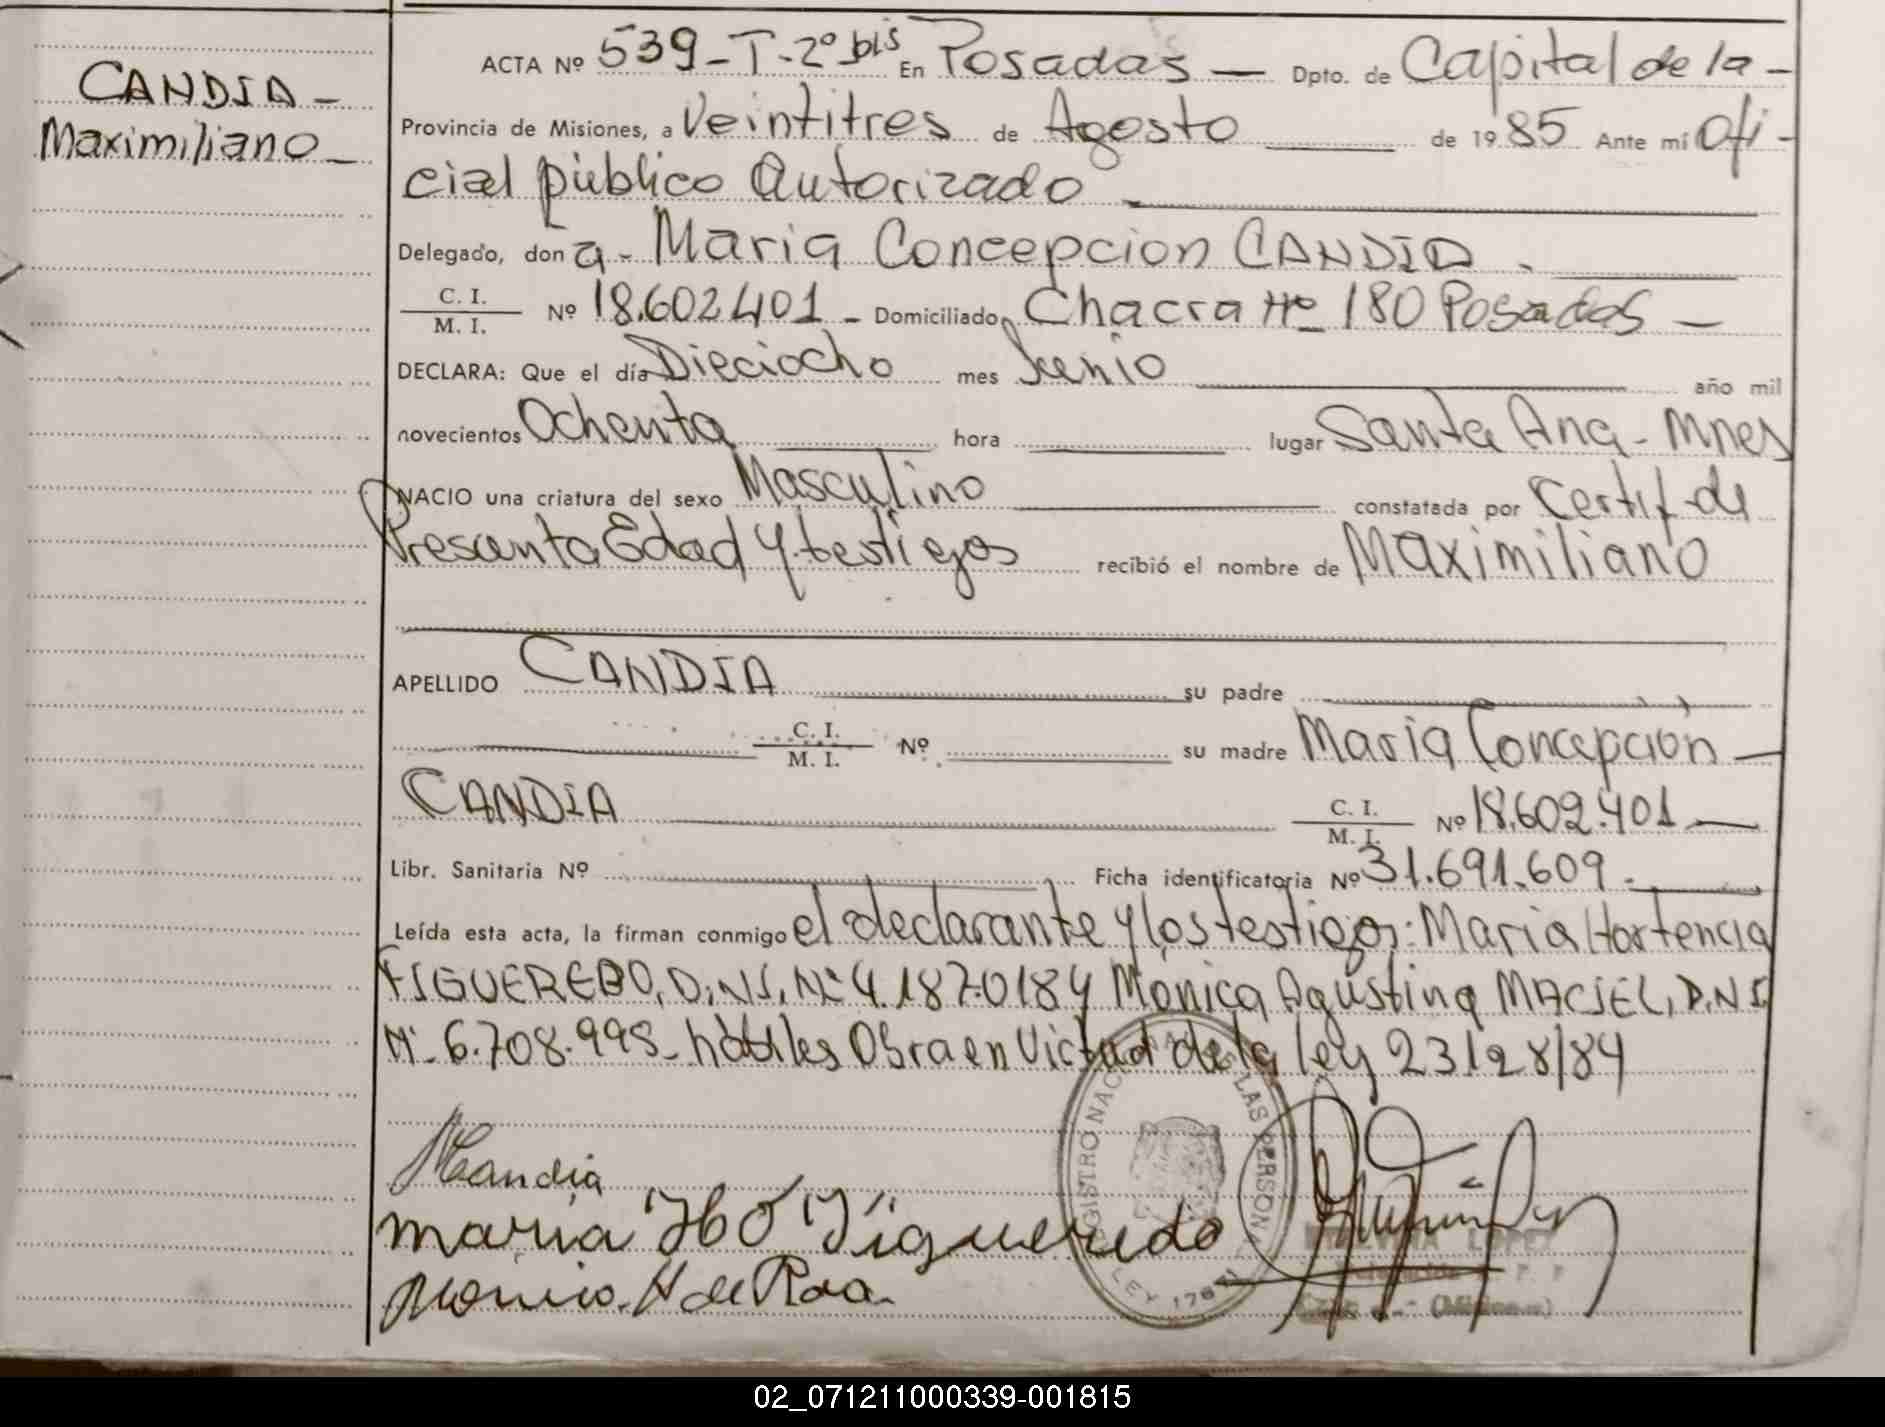 CANDIA -
Maximiliano -
ACTA Nº 539 - T - 2º bis En Posadas — Dpto. de Capital de la -
Provincia de Misiones, a Veintitres de Agosto de 1985 Ante mí Ofi-
cial público Autorizado
Delegado, don a - Maria Concepcion CANDIA -
C. I.
M. I. Nº 18.602.401 - Domiciliado Chacra Nº 180 Posadas —
DECLARA: Que el día Dieciocho mes Junio año mil
novecientos Ochenta hora lugar Santa Ana - Mnes
NACIO una criatura del sexo Masculino constatada por Certif. de
Presunta Edad y testigos recibió el nombre de Maximiliano
APELLIDO CANDIA su padre
C. I.
M. I. Nº su madre Maria Concepción —
CANDIA C. I.
M. I. Nº 18.602.401 —
Libr. Sanitaria Nº Ficha identificatoria Nº 31.691.609 -
Leída esta acta, la firman conmigo el declarante y los testigos: Maria Hortencia
FIGUEREDO, D.N.I. Nº 4.187.0184 Mónica Agustina MACIEL, D.N.I
Nº 6.708.995 - hábiles Obra en Virtud de la ley 23128/84
Candia
maria Figueredo
de Roa
REGISTRO NACIONAL DE LAS PERSONAS
LEY
LOPEZ
(Misiones)
02_071211000339-001815